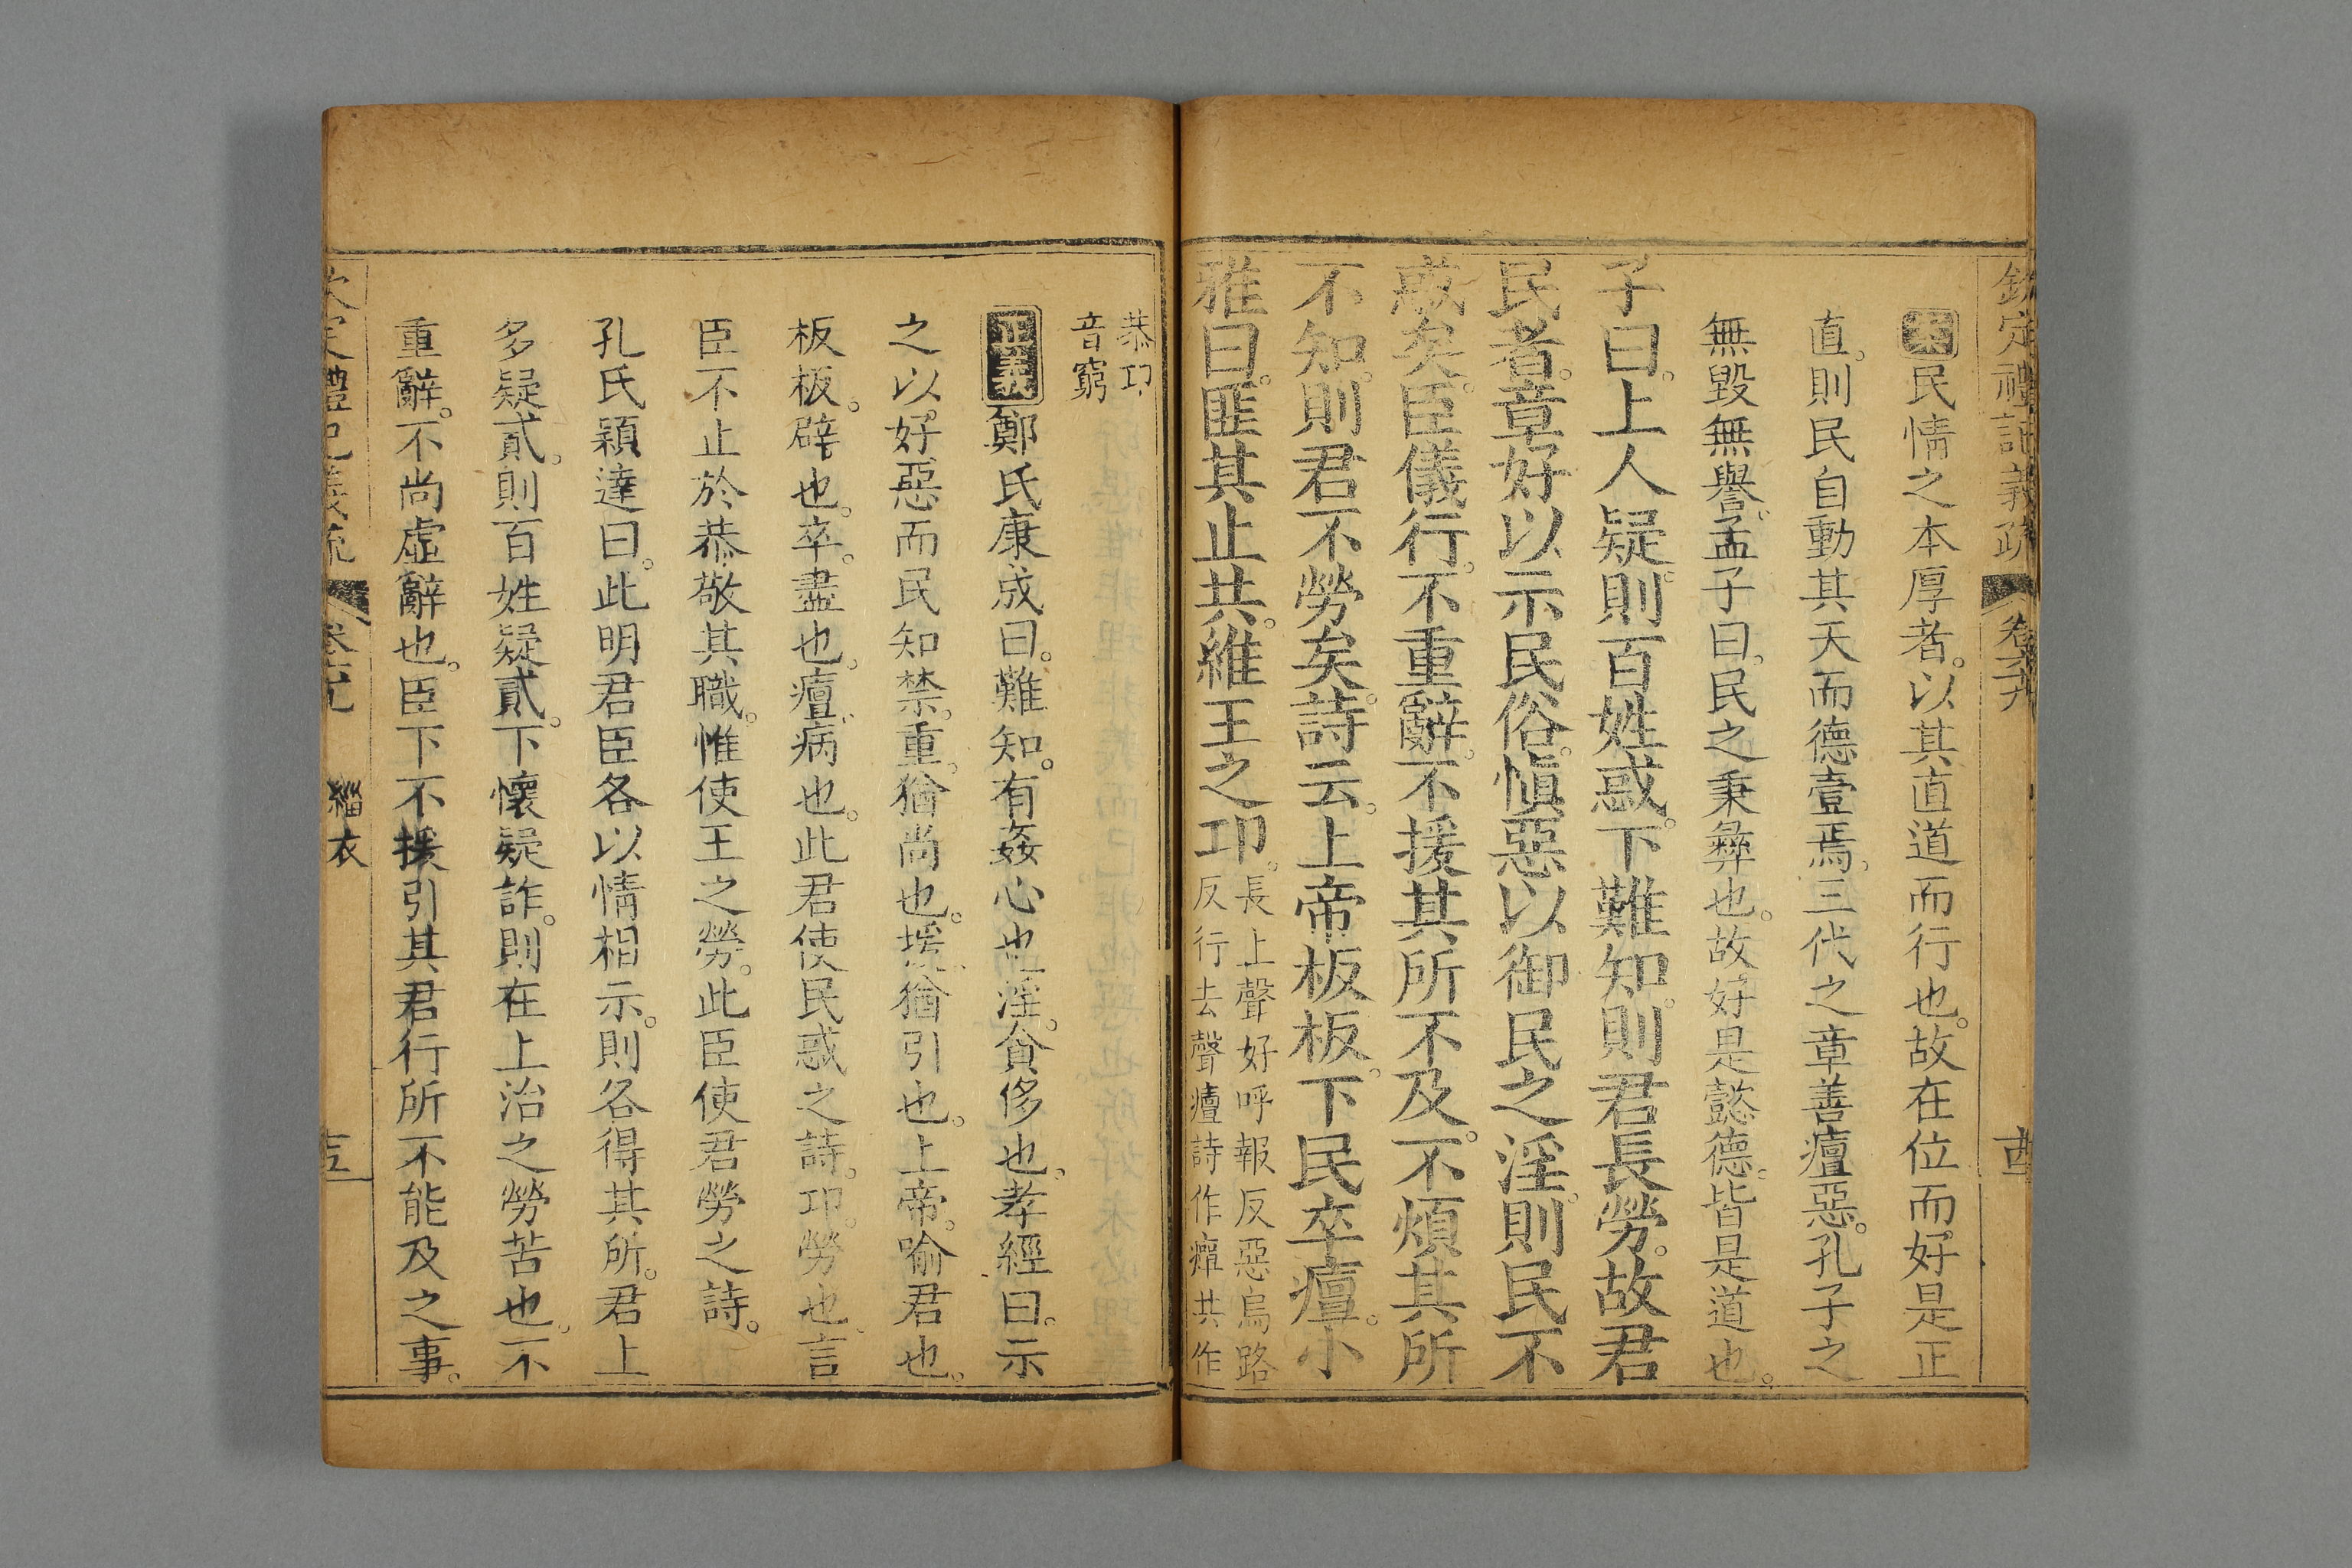 欽定禮記義疏 卷六十九 十四
案民情之本厚者。以其直道而行也。故在位而好是正
直。則民自動其天而德壹焉。三代之章善癉惡。孔子之
無毀無譽。孟子曰。民之秉彝也。故好是懿德。皆是道也。
子曰。上人疑則百姓惑。下難知。則君長勞。故君
民者。章好以示民俗。愼惡以御民之淫。則民不
惑矣。臣儀行。不重辭。不援其所不及。不煩其所
不知。則君不勞矣。詩云。上帝板板。下民卒癉。小
雅曰。匪其止共。維王之邛。長上聲好呼報反惡烏路
反行去聲癉詩作癉共作
恭邛
音窮
正義鄭氏康成曰。難知。有姦心也。淫。貪侈也。孝經曰。示
之以好惡而民知禁。重。猶尚也。援。猶引也。上帝。喻君也。
板板。辟也。卒。盡也。癉。病也。此君使民惑之詩。邛。勞也。言
臣不止於恭敬其職。惟使王之勞。此臣使君勞之詩。
孔氏穎達曰。此明君臣各以情相示。則各得其所。君上
多疑貳。則百姓疑貳。下懷疑詐。則在上治之勞苦也。不
重辭。不尚虛辭也。臣下不援引其君行所不能及之事。
欽定禮記義疏 卷六十九 緇衣